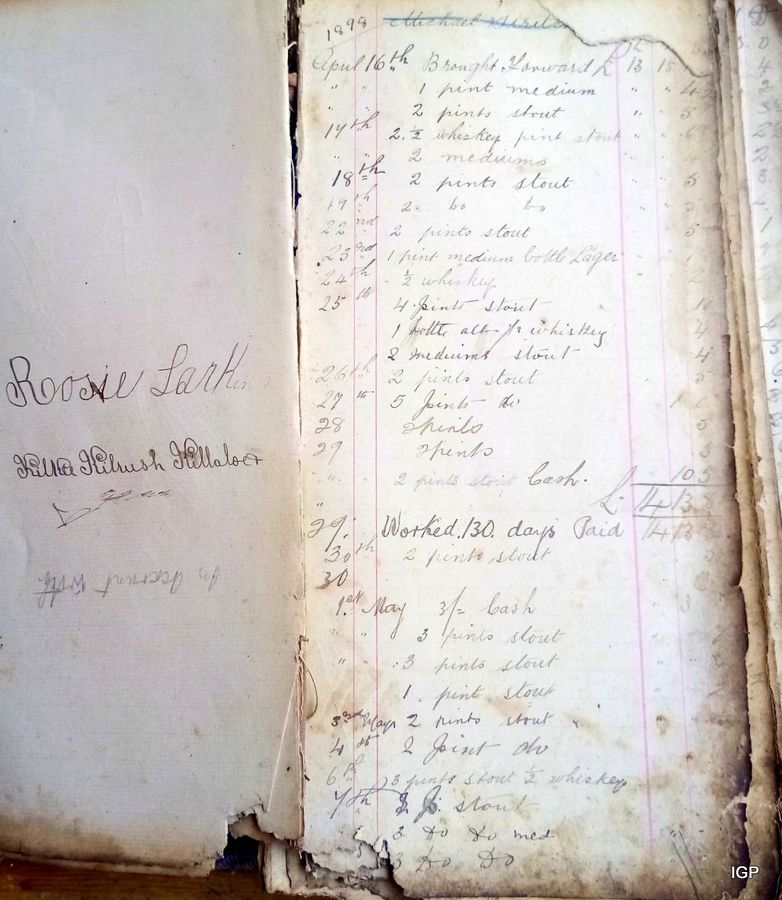 Rosie Larkin
Kilkee Kilrush Killaloe
In Account With
1898 Michael
April 16th Brought Forward £ 13 15
" " 1 pint medium 4
" " 2 pints stout 5
17th 2 ½ whiskey pint stout 6
" " 2 mediums 4
18th 2 pints stout 5
19th 2 Do Do 5
22nd 2 pints stout 5
23rd 1 pint medium bottle Lager
24th ½ whiskey
25th 4 pints stout 10
1 bottle ale 1/2 whiskey 4
2 mediums stout 4
26th 2 pints stout 5
27th 5 pints do 1
28 2 pints 5
29 2 pints 5
" 2 pints stout Cash. 10 5
£ 14 13
29. Worked 130 days Paid 14 13
30th 2 pints stout
30
1st May 3/= Cash 3
" " 3 pints stout
" " 3 pints stout
1 pint stout
3rd May 2 pints stout
4th 2 pint do
6th 3 pints stout ½ whiskey
7th 2 p. stout
3 Do Do med
3 Do Do
IGP